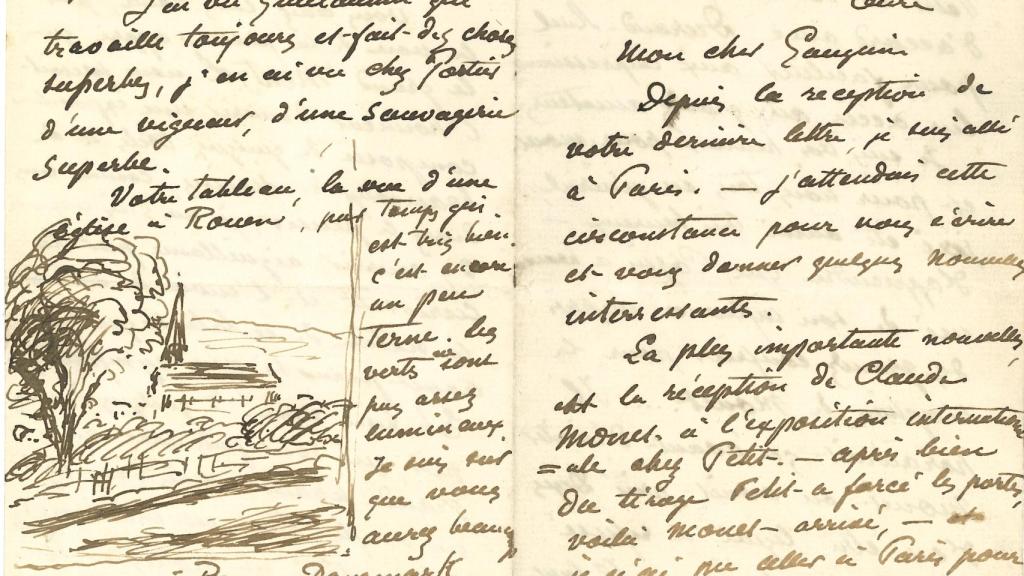 J'ai vu Guillaumin qui
travaille toujours et fait des choses
superbes, j'en ai vu chez Portier
d'une vigueur, d'une Sauvagerie
Superbe.
Votre tableau, la vue d'une
église à Rouen,
est très bien.
c'est encore
un peu
terne. les
verts ne sont
pas assez
lumineux.
Je suis sur
que vous
aurez beauc
Danemark
Mon cher Gauguin
Depuis la reception de
votre dernière lettre, je suis allé
à Paris. — j'attendais cette
circonstance pour vous écrire
et vous donner quelques nouvelles
interressantes.
La plus importante nouvelle,
est la réception de Claude
Monet à l'exposition internation
=ale chez Petit. — après bien
du tirage Petit a forcé les portes,
voilà Monet arrivé, — et
je n'ai pu aller à Paris pour